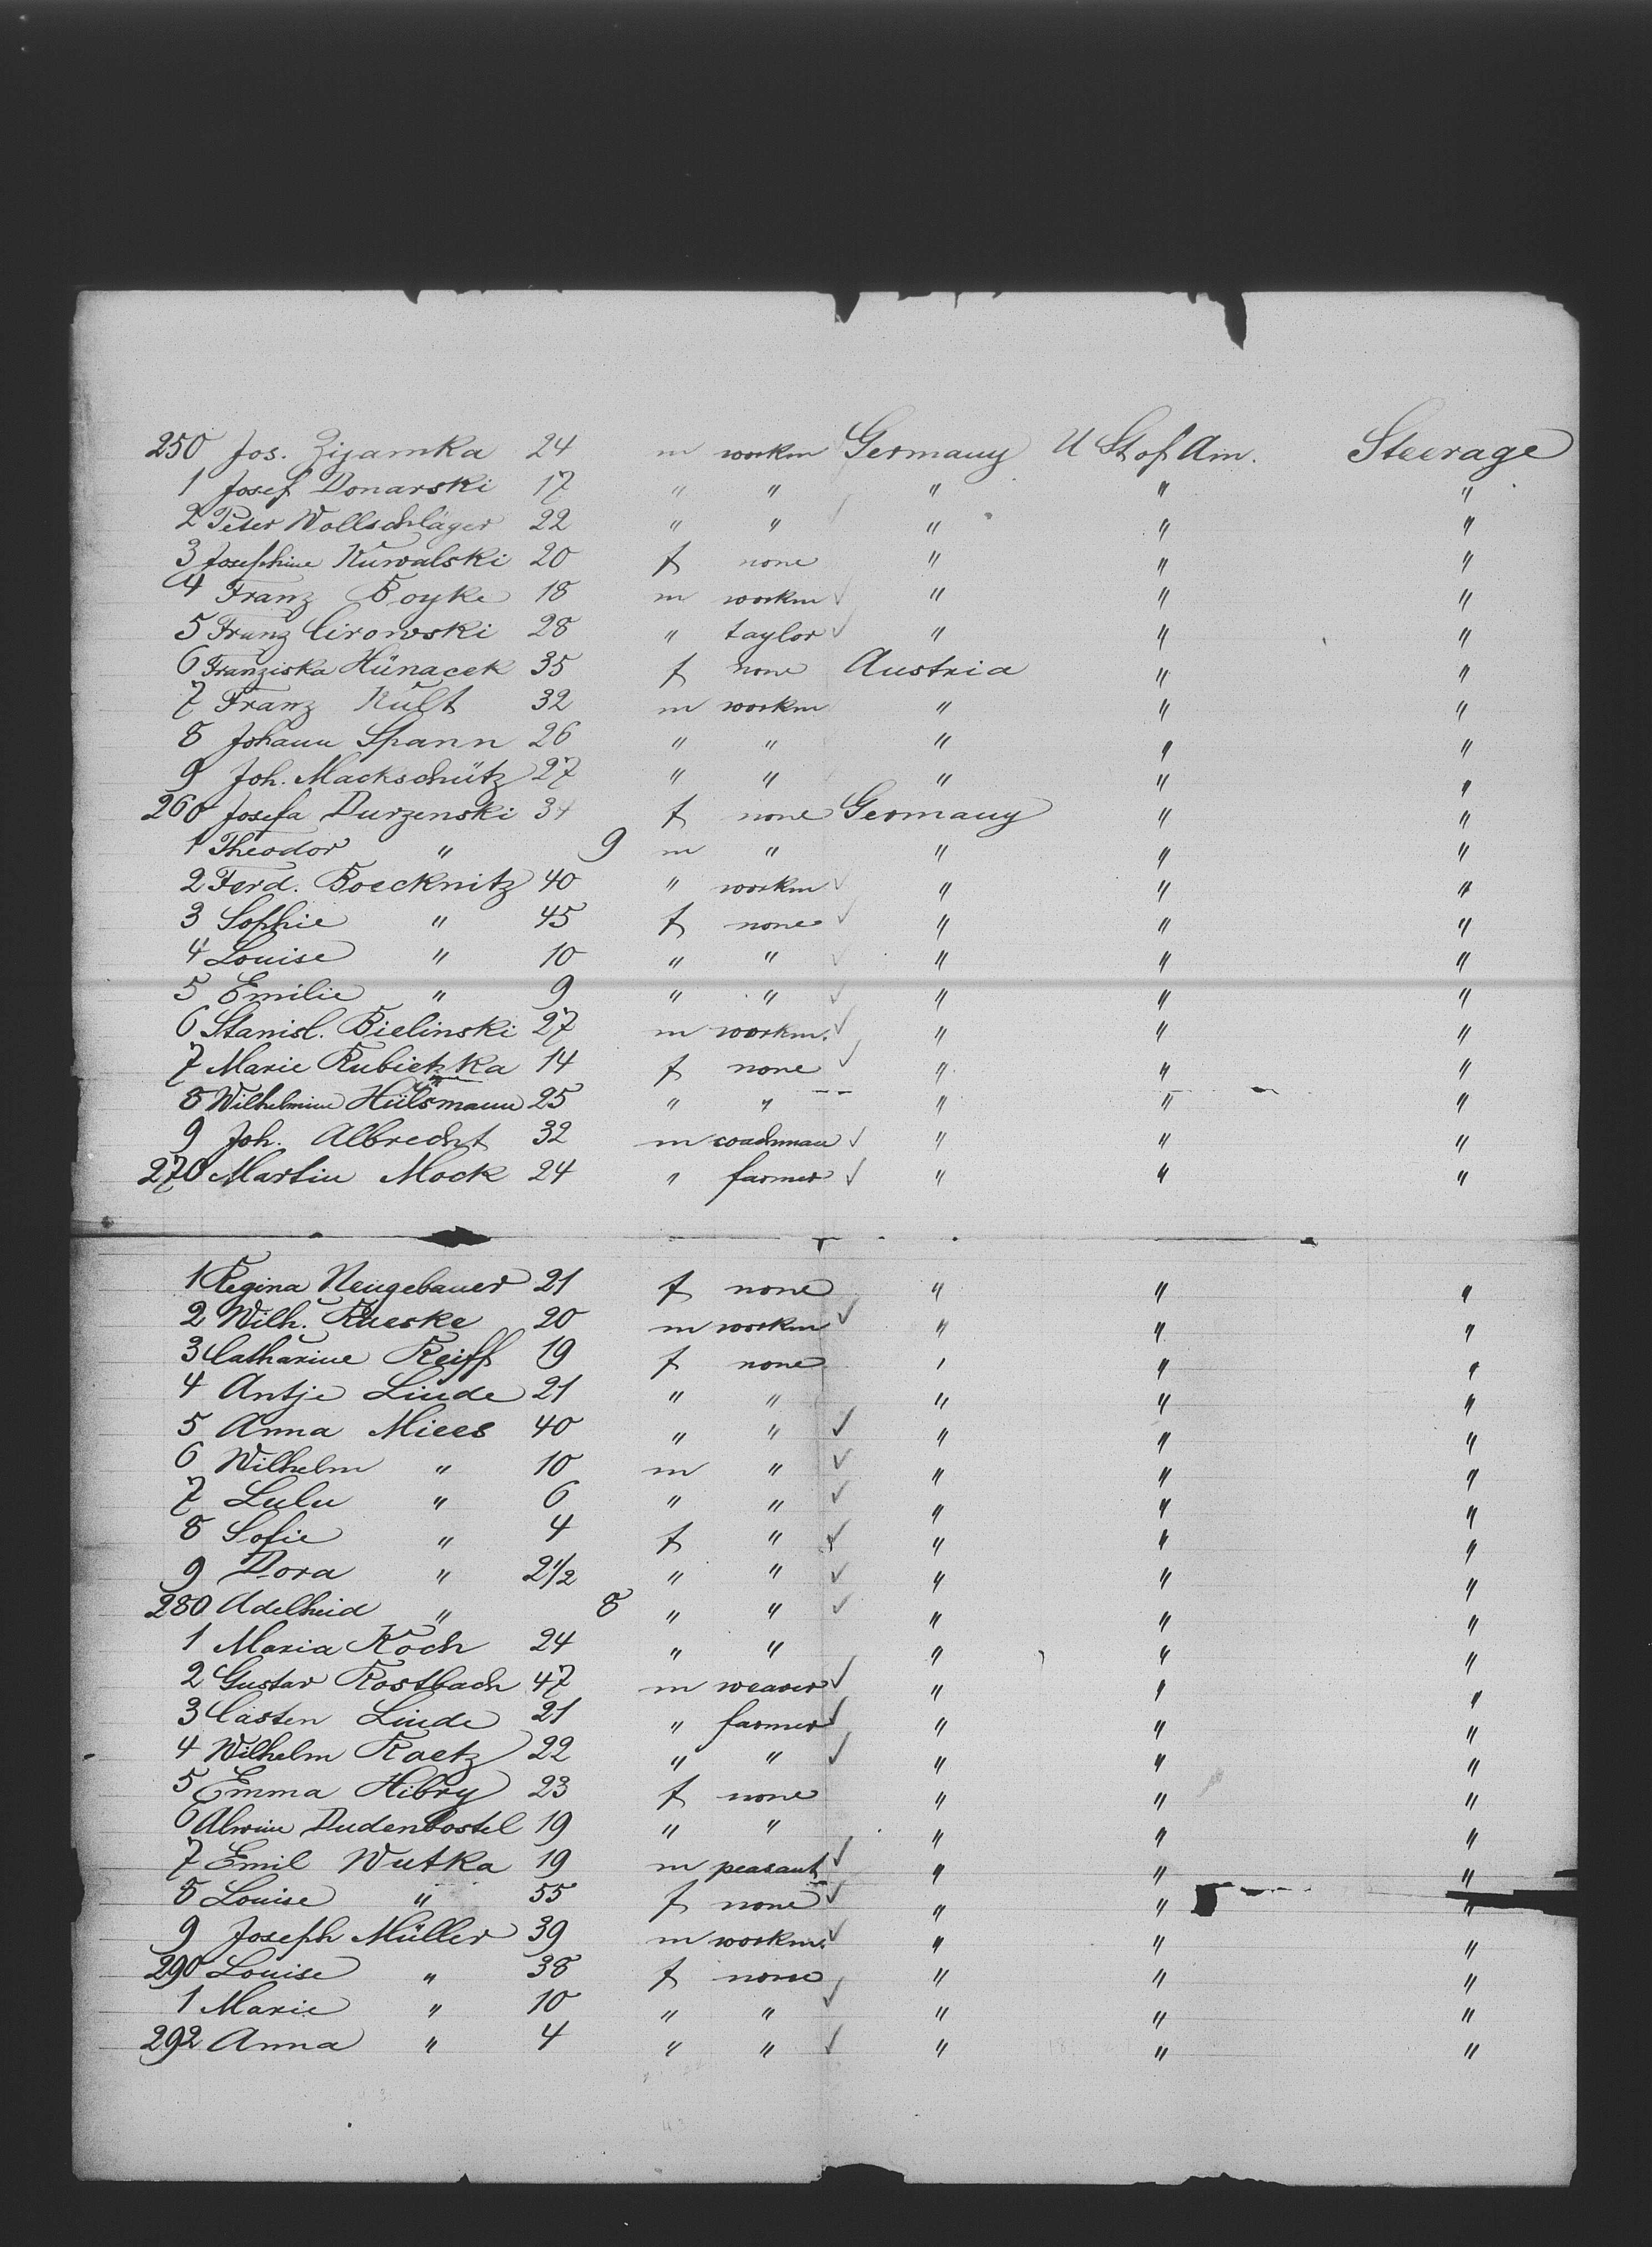 250 Jos. Zijamka 24 m workm Germany U St of Am. Steerage
1 Josef Donarski 17 " " " " "
2 Peter Wollschläger 22 " " " " "
3 Josephine Kuwalski 20 f none " " "
4 Franz Boyke 18 m workm " " "
5 Franz Cirowski 28 " taylor " " "
6 Franziska Hünacek 35 f none Austria " "
7 Franz Kult 32 m workm " " "
8 Johann Spann 26 " " " " "
9 Joh. Mackschütz 27 " " " " "
260 Josefa Durzenski 34 f none Germany " "
1 Theodor " 9 m " " " "
2 Ferd. Boecknitz 40 " workm " " "
3 Sophie " 45 f none " " "
4 Louise " 10 " " " " "
5 Emilie " 9 " " " " "
6 Stanisl. Bielinski 27 m workm. " " "
7 Marie Rubietzka 14 f none " " "
8 Wilhelmine Hülsmann 25 " " " " "
9 Joh. Albrecht 32 m coachman " " "
270 Martin Mock 24 " farmer " " "
1 Regina Neugebauer 21 f none " " "
2 Wilh. Rueske 20 m workm " " "
3 Catharine Reiff 19 f none " " "
4 Antje Linde 21 " " " " "
5 Anna Miees 40 " " " " "
6 Wilhelm " 10 m " " " "
7 Lulu " 6 " " " " "
8 Sofie " 4 f " " " "
9 Dora " 2 1/2 " " " " "
280 Adelheid " 8 " " " " "
1 Maria Koch 24 " " " " "
2 Gustav Rostbach 47 m weaver " " "
3 Casten Linde 21 " farmer " " "
4 Wilhelm Raetz 22 " " " " "
5 Emma Hibry 23 f none " " "
6 Alwine Dudenbostel 19 " " " " "
7 Emil Wutka 19 m peasant " " "
8 Louise " 55 f none " " "
9 Joseph Müller 39 m workm. " " "
290 Louise " 38 f none " " "
1 Marie " 10 " " " " "
292 Anna " 4 " " " " "